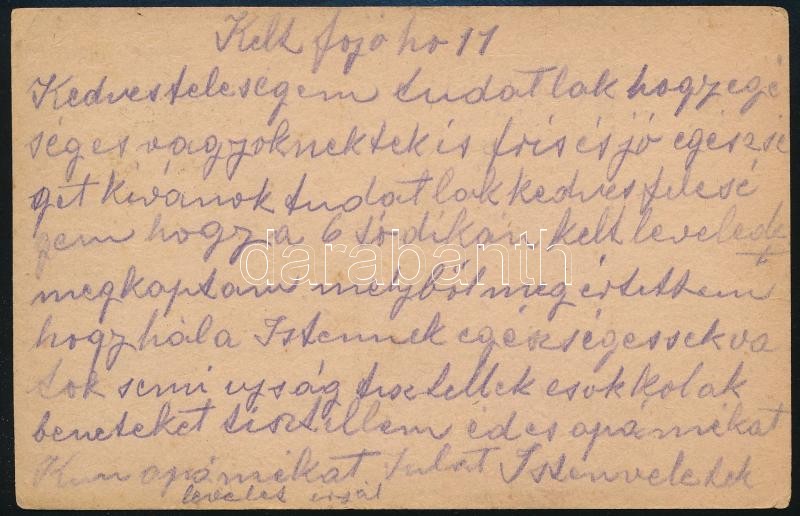 Kelt fojó ho 11
Kedves teleségem tudatlak hogy egé
séges vagyok nektek is fris és jó egészsé
get kivánok tudatlak kedves felesé
gem hogy a 6 kelt leveled
et
megkaptam melyböl meg értettem
hogy hála Istennek egészségessek va
tok semi ujság tisztellek csokkolak
beneteket tisztellem édes apámékat
Kun apámékat Julat Isten veletek
levelet irjál
darabanth